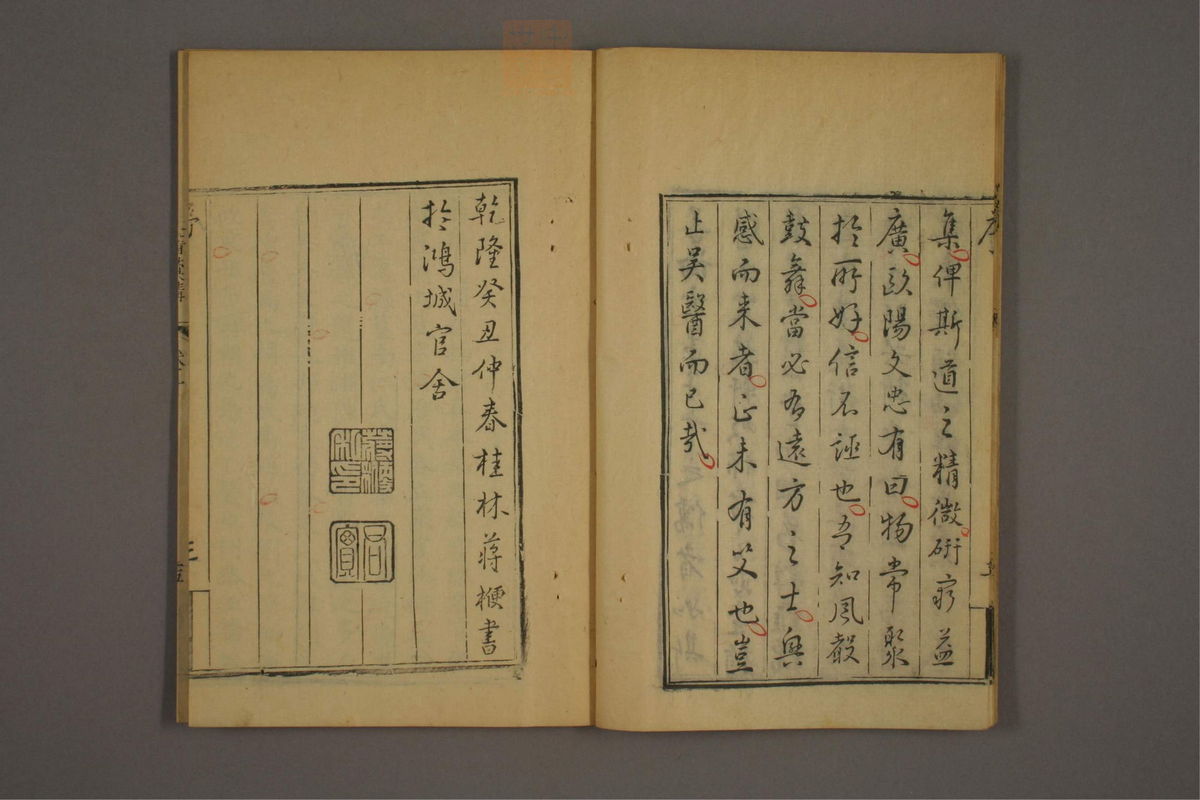 集俾斯道之精微研窮益
廣歐陽文忠有曰物常聚
於所好信不誣也吾知風聲
鼓舞當必有遠方之士興
感而来者正未有艾也豈
止吴醫而已哉
乾隆癸丑仲春桂林蔣楩書
於鴻城官舍